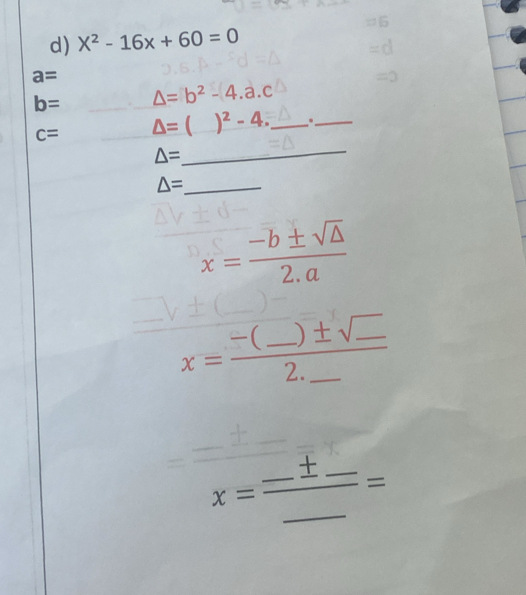 d) X² - 16x + 60 = 0
a=
b=
c=
Δ= b² - 4.a.c
Δ= ( )² - 4.___.___
Δ=_______________
Δ=_______
x = (-b ± √Δ) / 2. a
x = (-(__) ± √__) / 2.__
x = (__ ± __) / ____ =